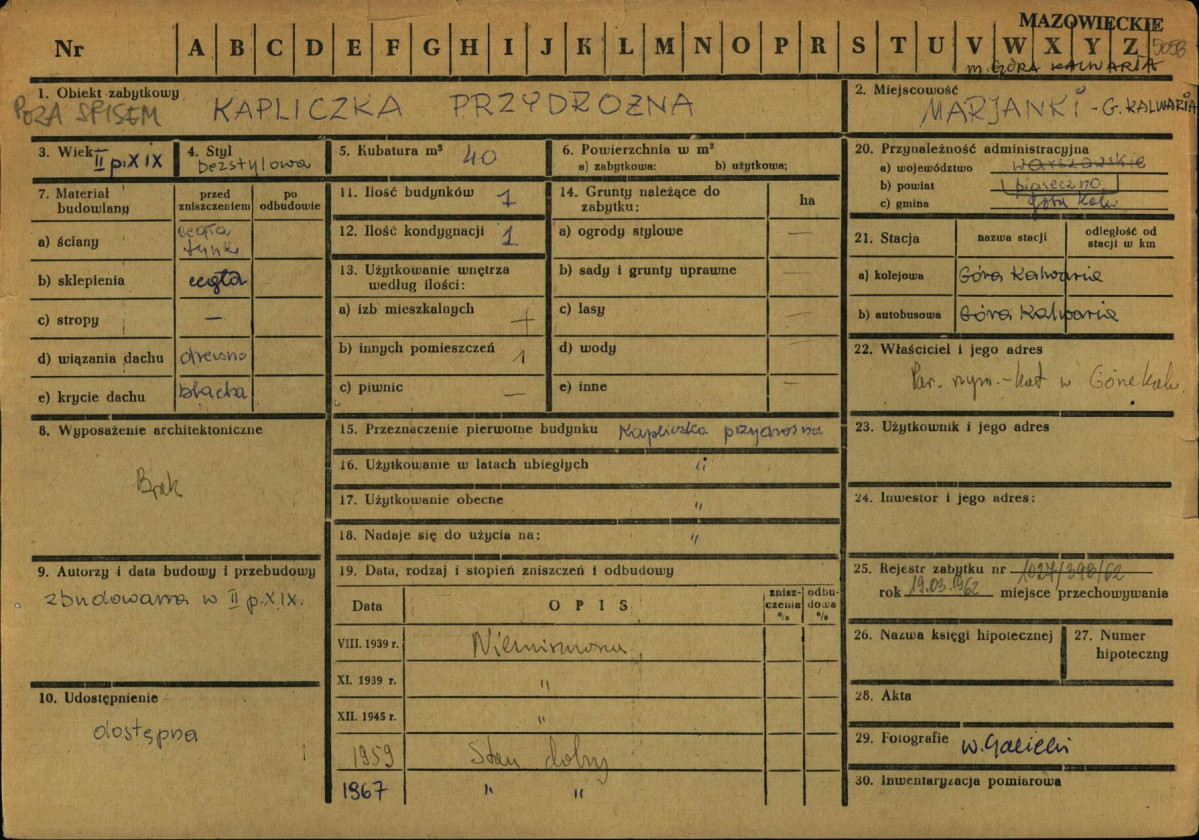 MAZOWIECKIE
Nr A B C D E F G H I J K L M N O P R S T U V W X Y Z 5058
m. GÓRA KALWARIA
1. Obiekt zabytkowy KAPLICZKA PRZYDROŻNA
POZA SPISEM
2. Miejscowość
MARJANKI - G. KALWARIA
3. Wiek II p. XIX
4. Styl
bezstylowa
5. Kubatura m³ 40
6. Powierzchnia w m²
a) zabytkowa: b) użytkowa;
7. Materiał budowlany
przed zniszczeniem
po odbudowie
a) ściany cegła tynk
b) sklepienia cegła
c) stropy —
d) wiązania dachu drewno
e) krycie dachu blacha
8. Wyposażenie architektoniczne
Brak
9. Autorzy i data budowy i przebudowy
zbudowana w II p. XIX.
10. Udostępnienie
dostępna
11. Ilość budynków 1
12. Ilość kondygnacji 1
13. Użytkowanie wnętrza
według ilości:
a) izb mieszkalnych
b) innych pomieszczeń 1
c) piwnic —
14. Grunty należące do
zabytku; ha
a) ogrody stylowe —
b) sady i grunty uprawne —
c) lasy —
d) wody —
e) inne —
15. Przeznaczenie pierwotne budynku Kapliczka przydrożna
16. Użytkowanie w latach ubiegłych "
17. Użytkowanie obecne "
18. Nadaje się do użycia na; "
19. Data, rodzaj i stopień zniszczeń i odbudowy
Data OPIS znisz-czenia % odbu-dowa %
VIII. 1939 r. Niezniszczona
XI. 1939 r. "
XII. 1945 r. "
1959 Stan dobry
1967 " "
20. Przynależność administracyjna
a) województwo warszawskie
b) powiat piaseczno
c) gmina Góra Kalw.
21. Stacja nazwa stacji odległość od stacji w km
a) kolejowa Góra Kalwaria
b) autobusowa Góra Kalwaria
22. Właściciel i jego adres
Par. rzym.-kat w Górze Kalw.
23. Użytkownik i jego adres
24. Inwestor i jego adres:
25. Rejestr zabytku nr 1027/398/62
rok 19.03.1962 miejsce przechowywania
26. Nazwa księgi hipotecznej
27. Numer
hipoteczny
28. Akta
29. Fotografie W. Galicki
30. Inwentaryzacja pomiarowa